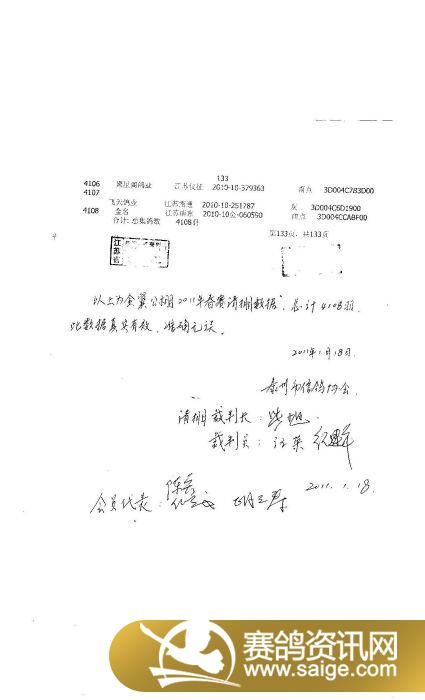 133
4106 江苏仪征 2010-10-379363 雨点 3D004C783D00
4107 飞天鸽业 江苏南通 2010-10-251787 灰 3D004C6D1900
4108 金名 江苏南京 2010-10公-060590 雨点 3D004CCABF00
合计: 总集鸽数 4108羽
第133页, 共133页
江苏省
以上为金寰公棚2011年春赛清棚数据, 总计4108羽.
此数据真实有效, 准确无误.
2011年1月18日.
泰州市信鸽协会
清棚裁判长:
裁判员:
会员代表:
2011.1.18
赛鸽资讯网
www.saige.com